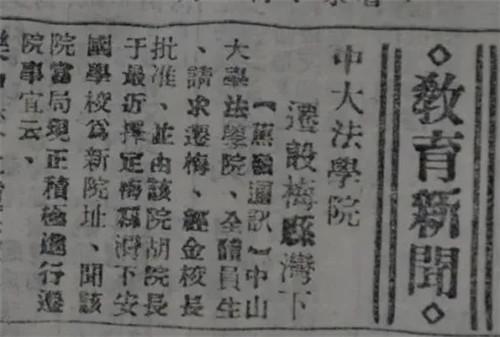 ◇教育新聞◇
中大法學院
遷設梅縣灣下
【蕉嶺通訊】中山
大學法學院、全體員生
、請求遷梅、經金校長
批准、並由該院胡院長
于最近擇定梅縣灣下安
國學校爲新院址、聞該
院當局現正積極進行遷
院事宜云、